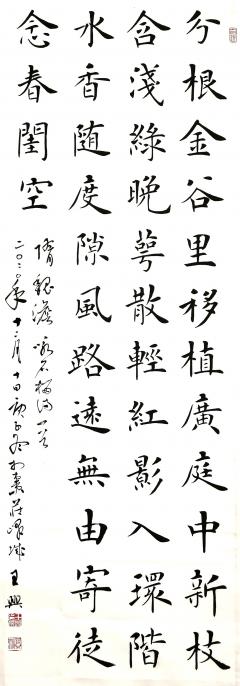 分根金谷里移植廣庭中新枝
含淺綠晚萼散輕紅影入環階
水香随度隙風路遠無由寄徒
念春閨空
隋魏澹咏石榴詩一首
二〇二〇年十二月十日庚子冬於棗莊嶧城王興